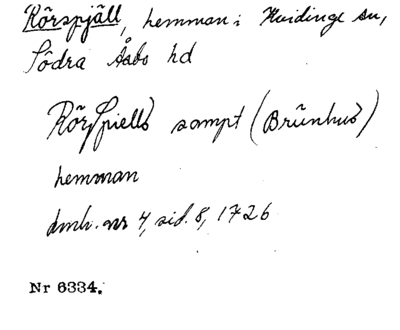 Rõrspjäll, hemman i Kvidinge sn,
Södra Åsbo hd
Rõr Spiells sampt (Brũnhus)
hemman
dmh. nr 4, sid. 8, 1726
Nr 6334.